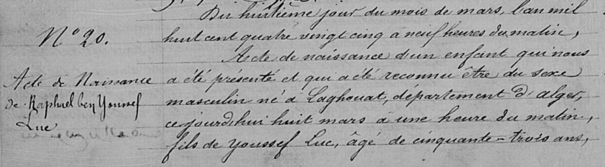 Du huitième jour du mois de mars, l'an mil
N° 20.
huit cent quatre vingt cinq a neuf heures du matin,
Acte de naissance d'un enfant qui nous
Acte de Naissance
a été présenté et qui a été reconnu être du sexe
de Raphael ben Youssef
masculin né à Laghouat, département d'Alger,
Luc
ce jourd'hui huit mars à une heure du matin,
fils de Youssef Luc, âgé de cinquante-trois ans,